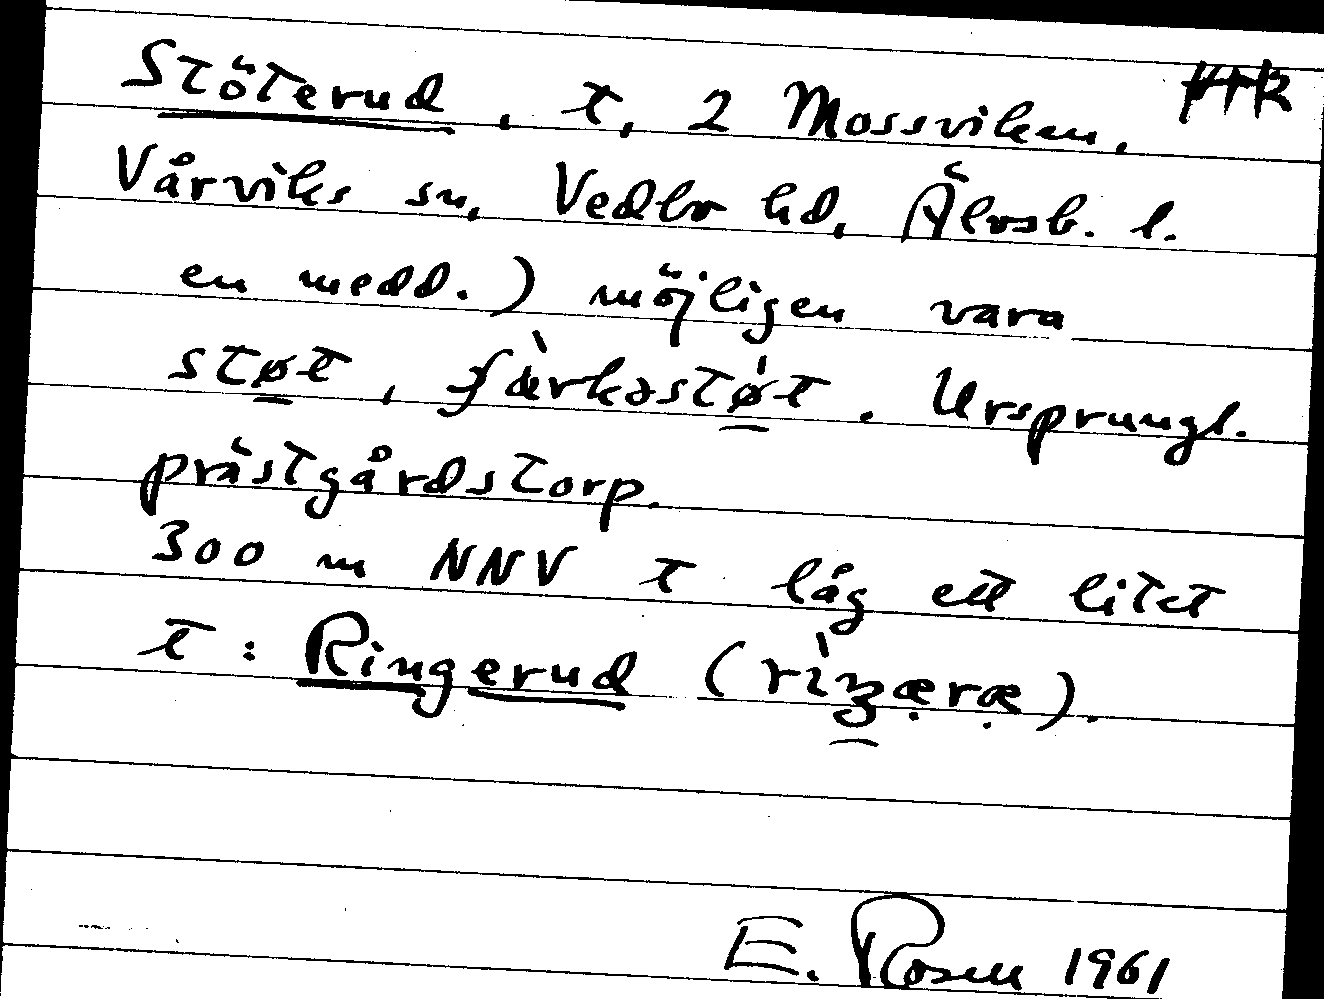 Stöterud, t, 2 Mossviken,
Vårviks sn, Vedbo hd, Älvsb. l.
en medd.) möjligen vara
støt, færkəstøt. Ursprungl.
prästgårdstorp.
300 m NNV t låg ett litet
t: Ringerud (
E. Rosell 1961